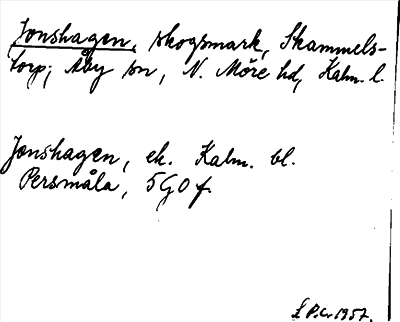 Jonshagen, skogsmark, Skammels-
torp, Åby sn, N. Möre hd, Kalm. l.
Jonshagen, ek. Kalm. bl.
Persmåla, 5G0f.
P.Lr 1957.